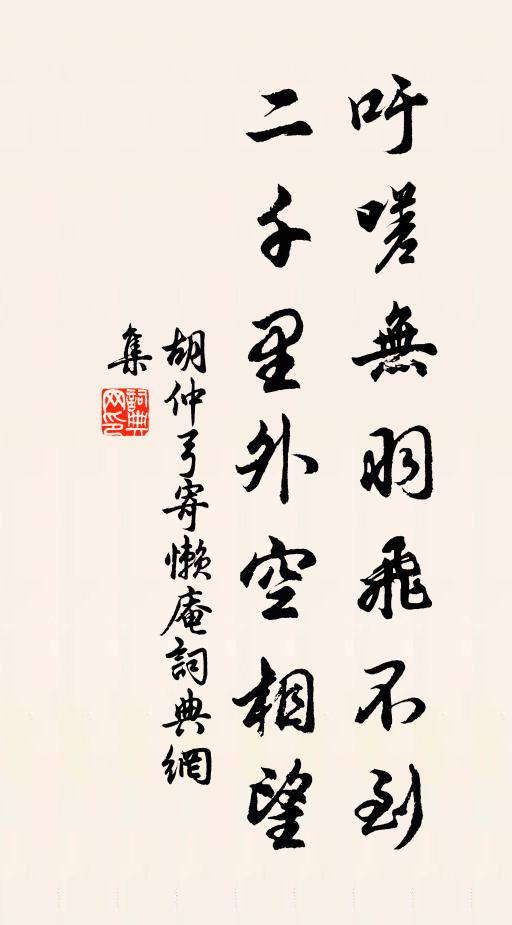 吁嗟無羽飛不到
二千里外空相望
胡仲弓寄懶庵詞典網
集
詞典
网印